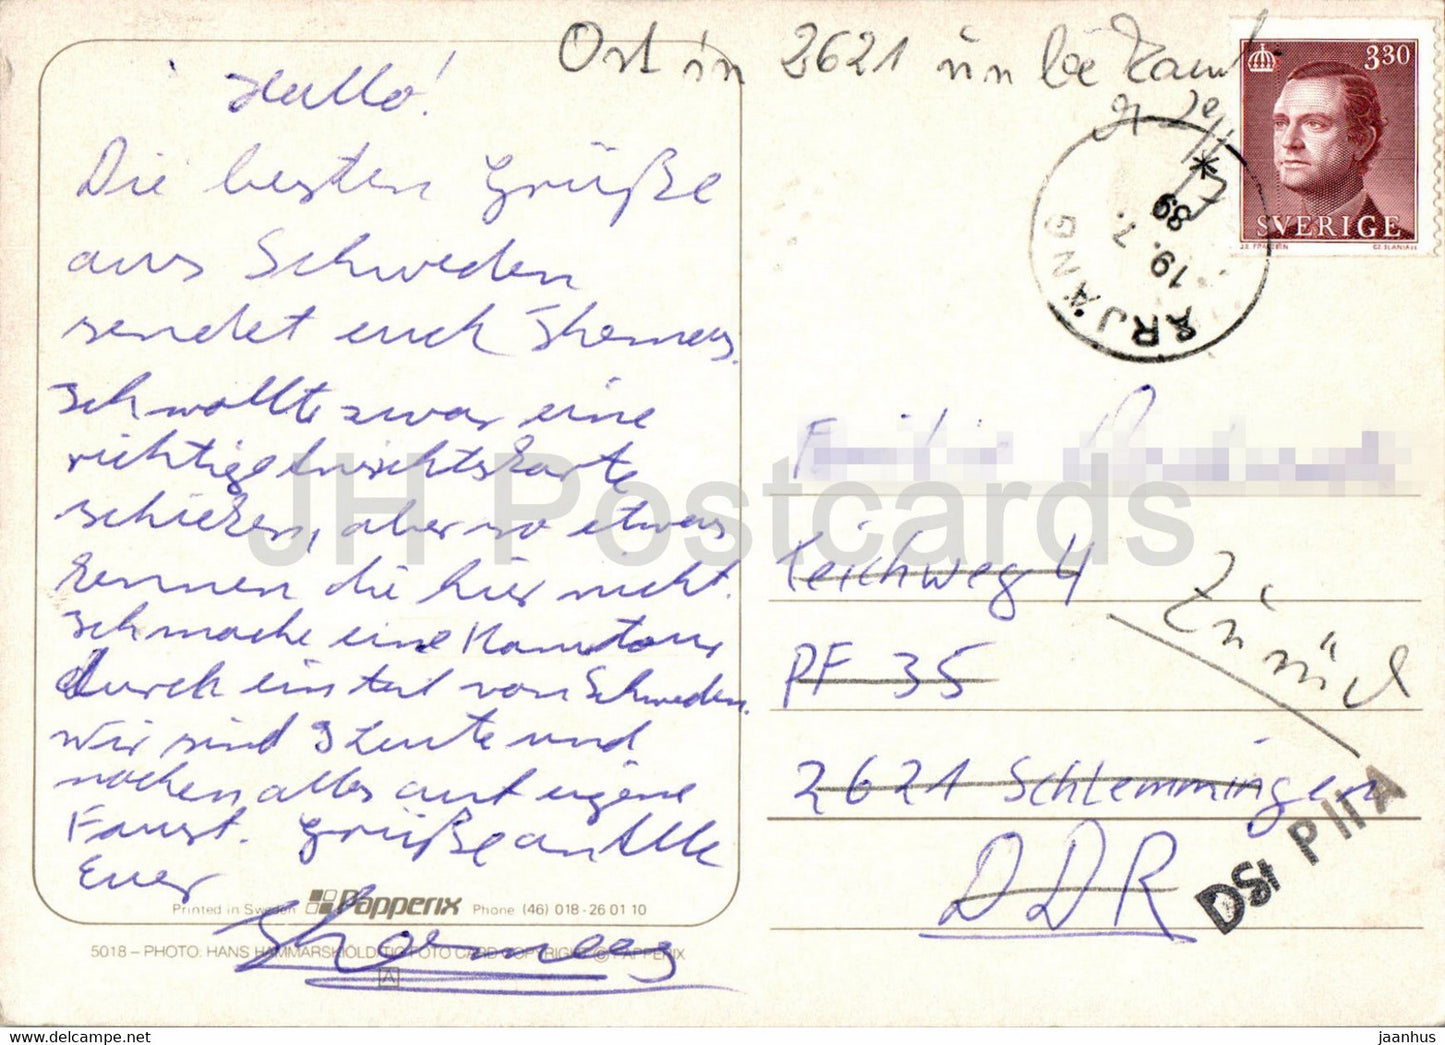 Ort in 2621 un be kannt
3.30
SVERIGE
ÅRJÄNG
19. 7. 89
Hallo!
Die besten Grüße
aus Schweden
sendet euch Thomas.
Ich wollte zwar eine
richtige Ansichtskarte
schicken, aber so etwas
kennen die hier nicht.
Ich mache eine Kanutour
durch ein teil von Schweden.
Wir sind 3 Leute und
machen alles auf eigene
Faust. Grüße an Alle
Euer
Thomas
Teichweg 4
PF 35
2621 Schlemmingen
DDR
Zurück
DSt PIIA
Printed in Sweden Papperix Phone (46) 018-26 01 10
5018 – PHOTO: HANS HAMMARSKIÖLD/TIO FOTO CARD COPYRIGHT © PAPPERIX
A
JH Postcards
jaanhus
HipPostcard.com